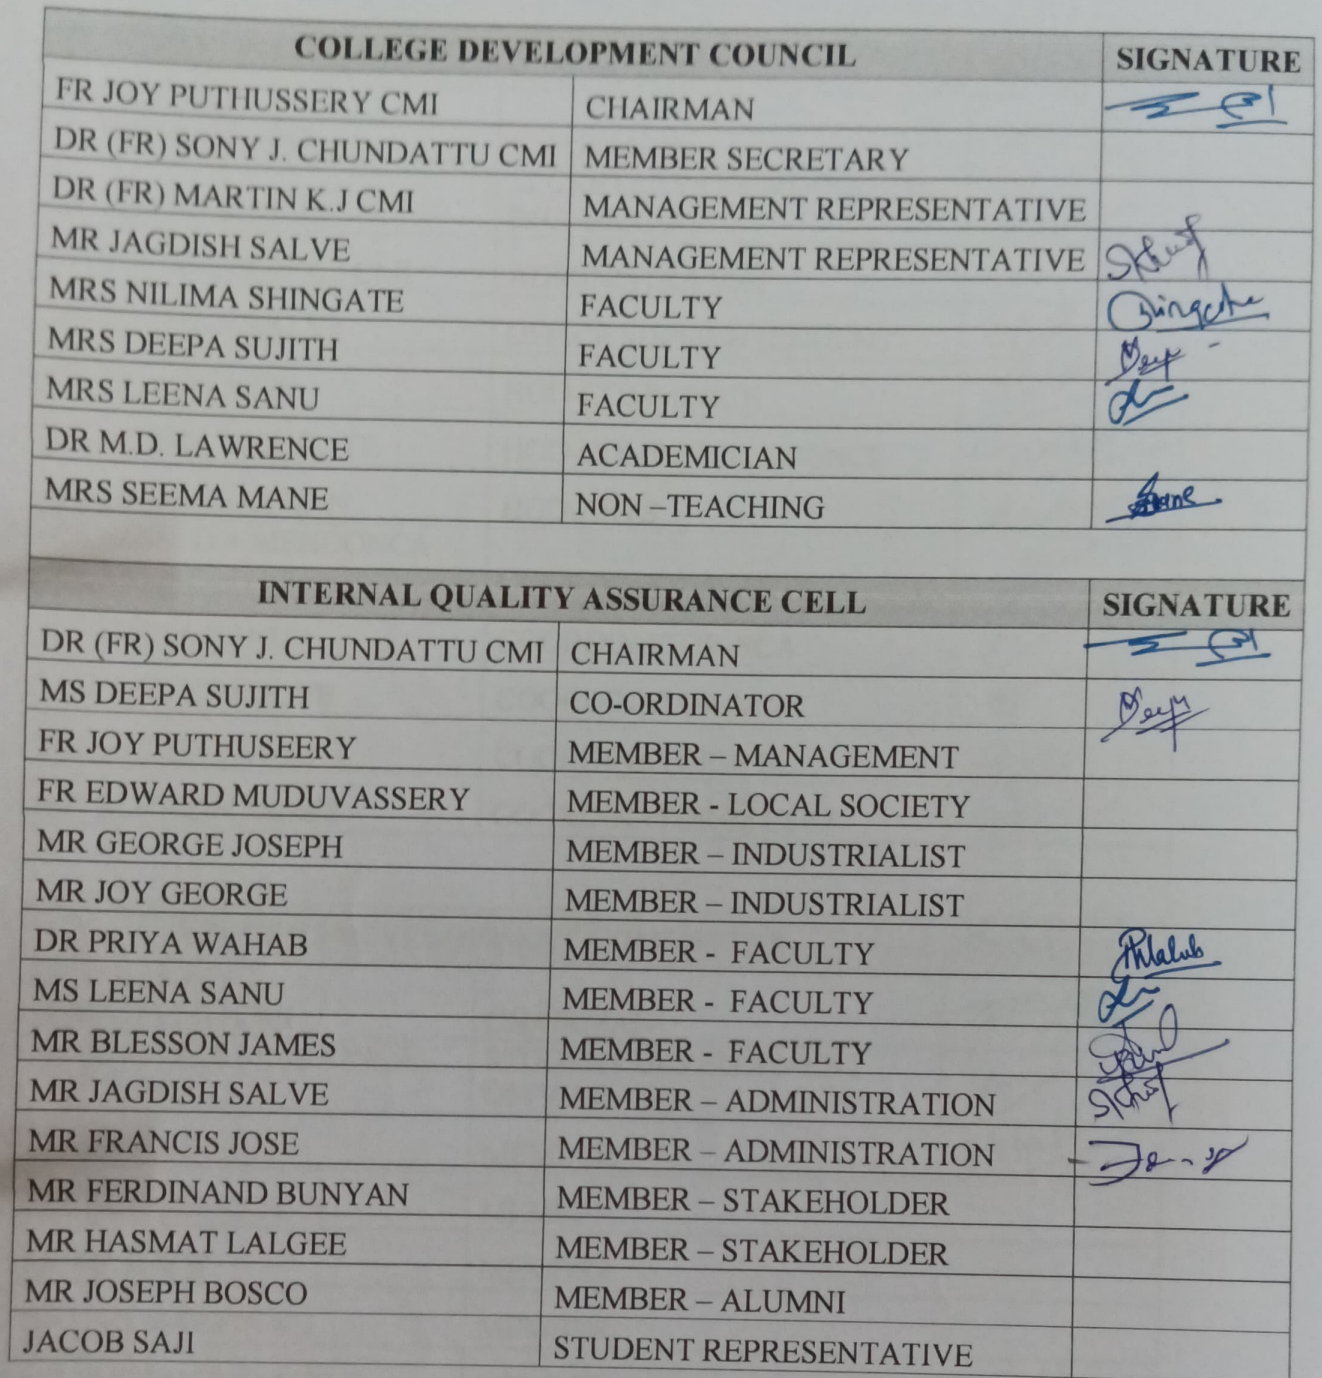 COLLEGE DEVELOPMENT COUNCIL SIGNATURE
FR JOY PUTHUSSERY CMI CHAIRMAN
DR (FR) SONY J. CHUNDATTU CMI MEMBER SECRETARY
DR (FR) MARTIN K.J CMI MANAGEMENT REPRESENTATIVE
MR JAGDISH SALVE MANAGEMENT REPRESENTATIVE
MRS NILIMA SHINGATE FACULTY Shingate
MRS DEEPA SUJITH FACULTY
MRS LEENA SANU FACULTY
DR M.D. LAWRENCE ACADEMICIAN
MRS SEEMA MANE NON –TEACHING
INTERNAL QUALITY ASSURANCE CELL SIGNATURE
DR (FR) SONY J. CHUNDATTU CMI CHAIRMAN
MS DEEPA SUJITH CO-ORDINATOR
FR JOY PUTHUSEERY MEMBER – MANAGEMENT
FR EDWARD MUDUVASSERY MEMBER - LOCAL SOCIETY
MR GEORGE JOSEPH MEMBER – INDUSTRIALIST
MR JOY GEORGE MEMBER – INDUSTRIALIST
DR PRIYA WAHAB MEMBER - FACULTY
MS LEENA SANU MEMBER - FACULTY
MR BLESSON JAMES MEMBER - FACULTY
MR JAGDISH SALVE MEMBER – ADMINISTRATION
MR FRANCIS JOSE MEMBER – ADMINISTRATION
MR FERDINAND BUNYAN MEMBER – STAKEHOLDER
MR HASMAT LALGEE MEMBER – STAKEHOLDER
MR JOSEPH BOSCO MEMBER – ALUMNI
JACOB SAJI STUDENT REPRESENTATIVE